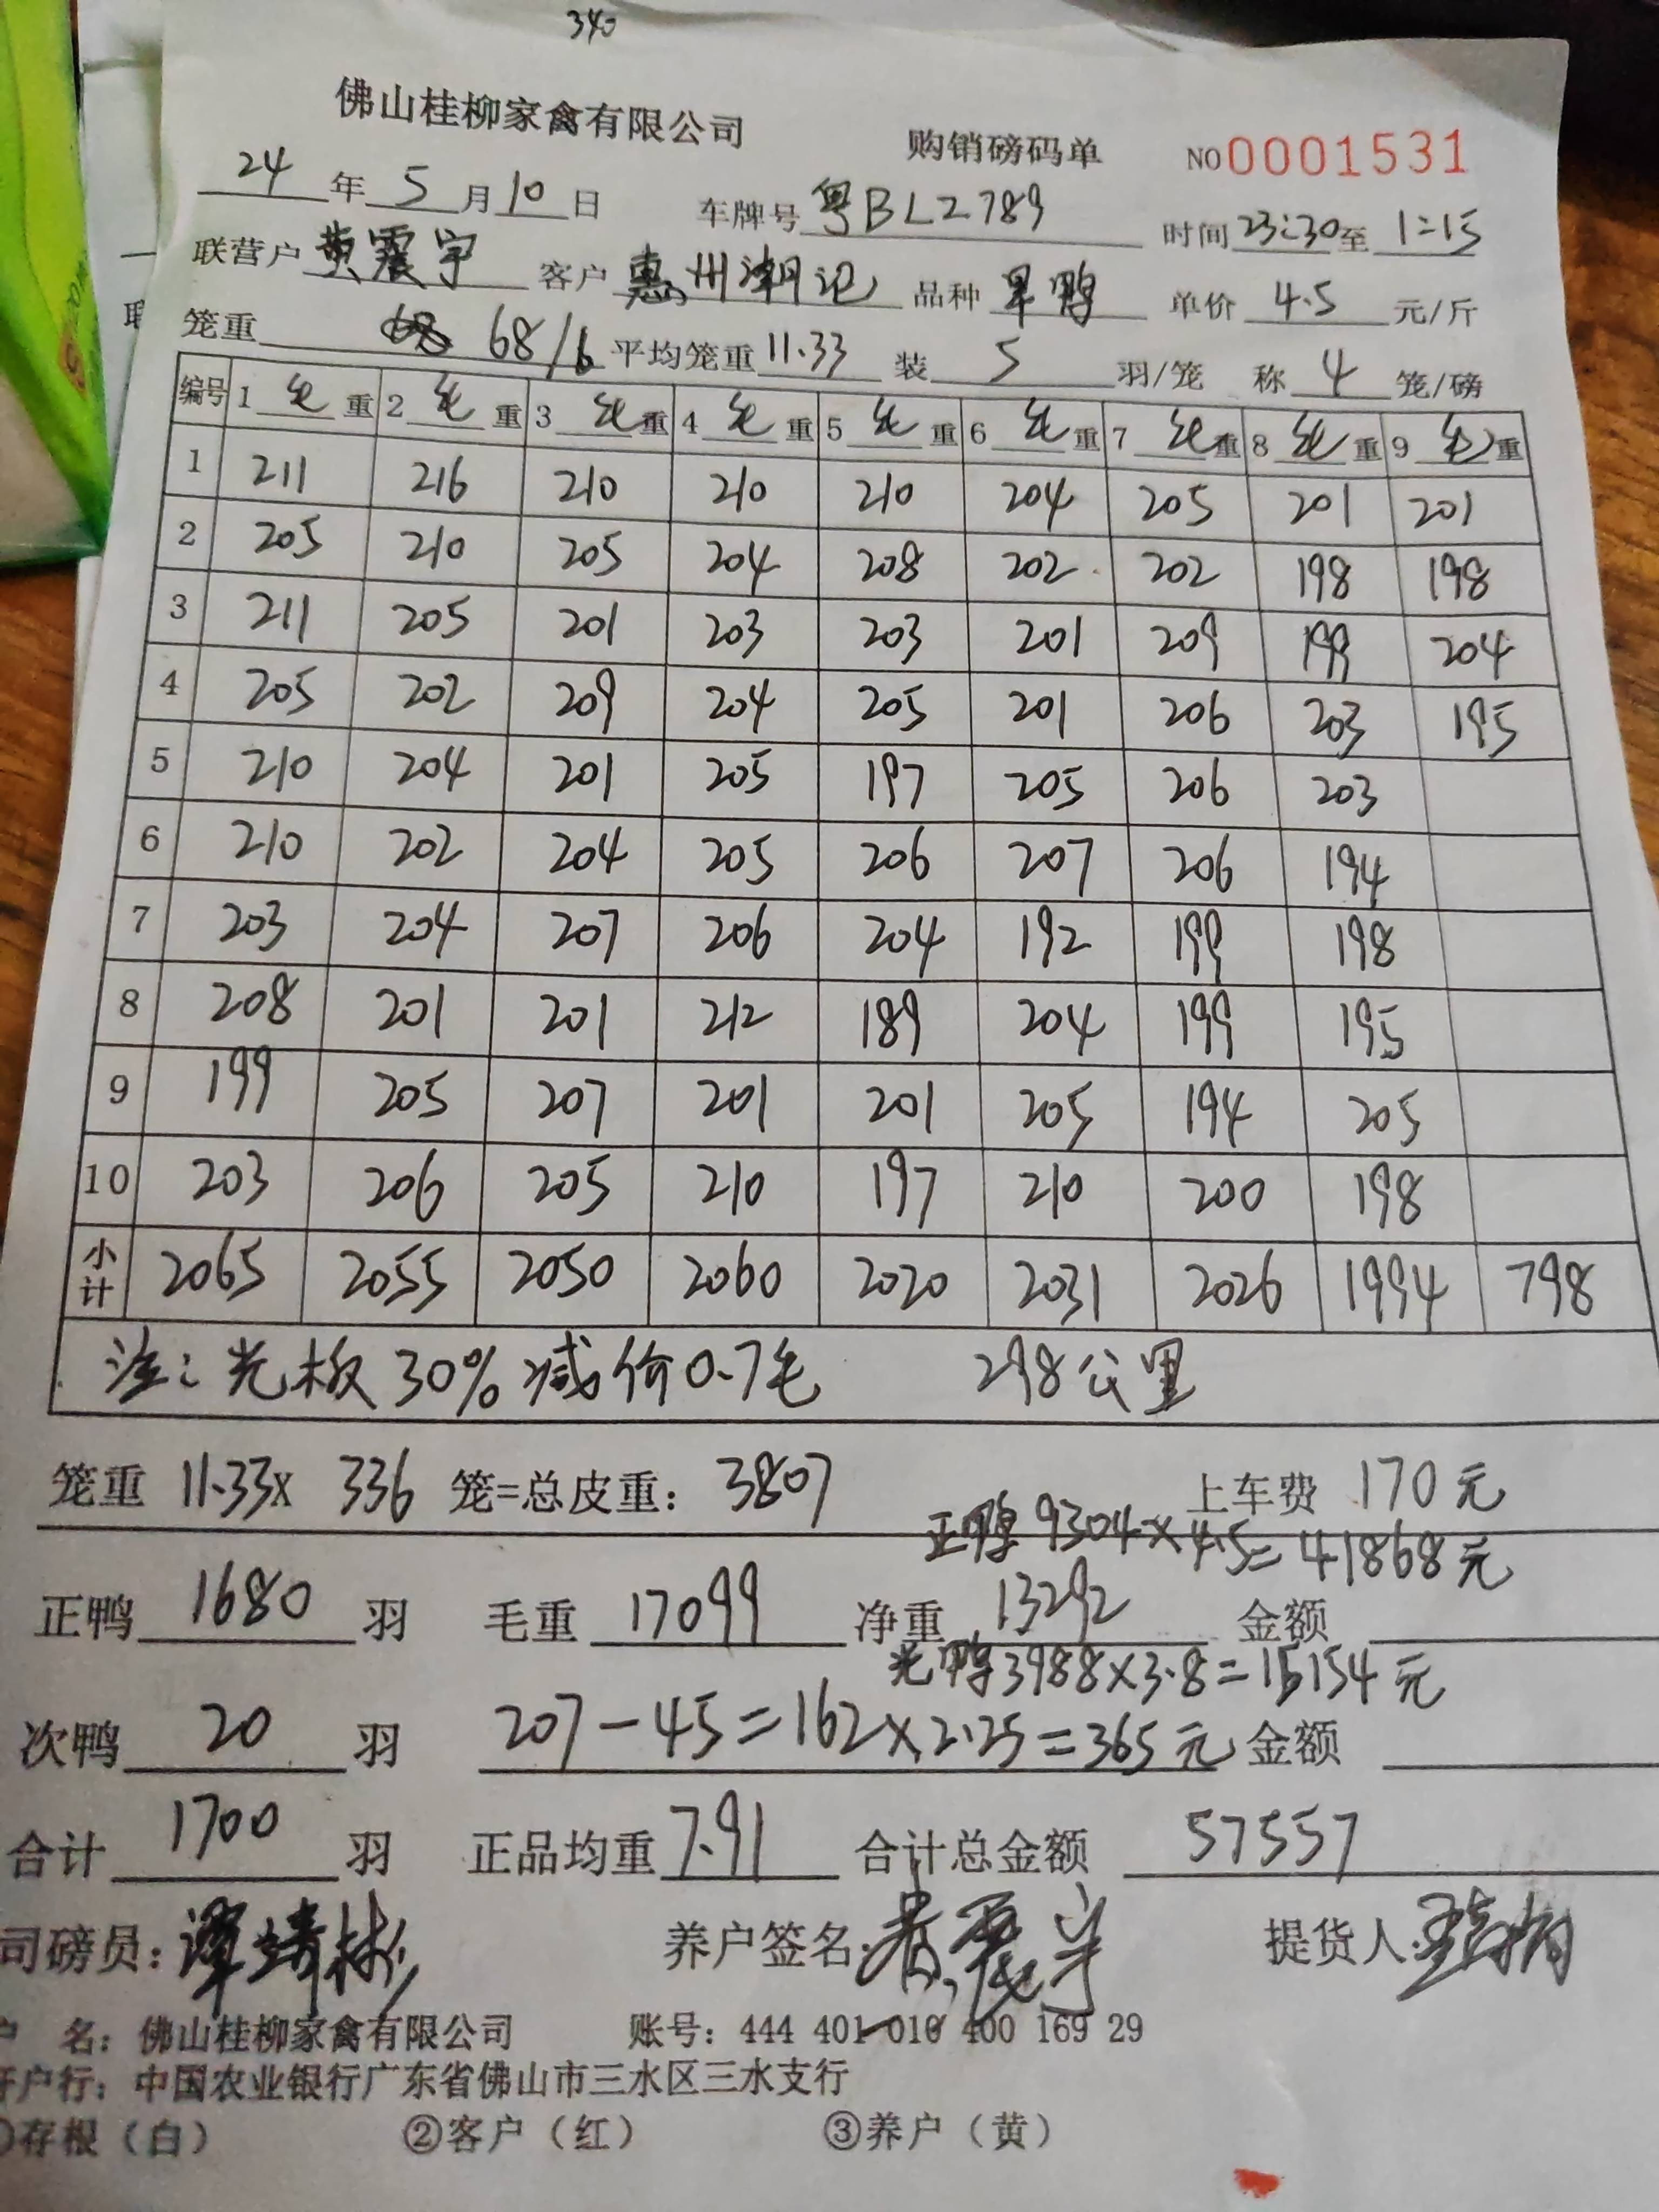 340
佛山桂柳家禽有限公司 购销磅码单 NO 0001531
24 年 5 月 10 日 车牌号 粤BL2789 时间 23:30 至 1:15
联营户 黄震宇 客户 惠州潮记 品种 旱鸭 单价 4.5 元/斤
笼重 68/6 平均笼重 11.33 装 5 羽/笼 称 4 笼/磅
编号 1 毛 重 2 毛 重 3 毛 重 4 毛 重 5 毛 重 6 毛 重 7 毛 重 8 毛 重 9 毛 重
1 211 216 210 210 210 204 205 201 201
2 205 210 205 204 208 202 202 198 198
3 211 205 201 203 203 201 209 199 204
4 205 202 209 204 205 201 206 203 195
5 210 204 201 205 197 205 206 203
6 210 202 204 205 206 207 206 194
7 203 204 207 206 204 192 199 198
8 208 201 201 212 189 204 199 195
9 199 205 207 201 201 205 194 205
10 203 206 205 210 197 210 200 198
小计 2065 2055 2050 2060 2020 2031 2026 1994 798
注:光板30%减价0.7毛 298公里
笼重 11.33x 336 笼=总皮重: 3807 上车费 170元
正鸭 9304×4.5=41868元
正鸭 1680 羽 毛重 17099 净重 13292 金额
光鸭3988×3.8=15154元
次鸭 20 羽 207-45=162×2.25=365元 金额
合计 1700 羽 正品均重 7.91 合计总金额 57557
司磅员: 谭靖彬 养户签名: 黄震宇 提货人:
户 名: 佛山桂柳家禽有限公司 账号: 444 401 010 400 169 29
开户行: 中国农业银行广东省佛山市三水区三水支行
①存根（白） ②客户（红） ③养户（黄）